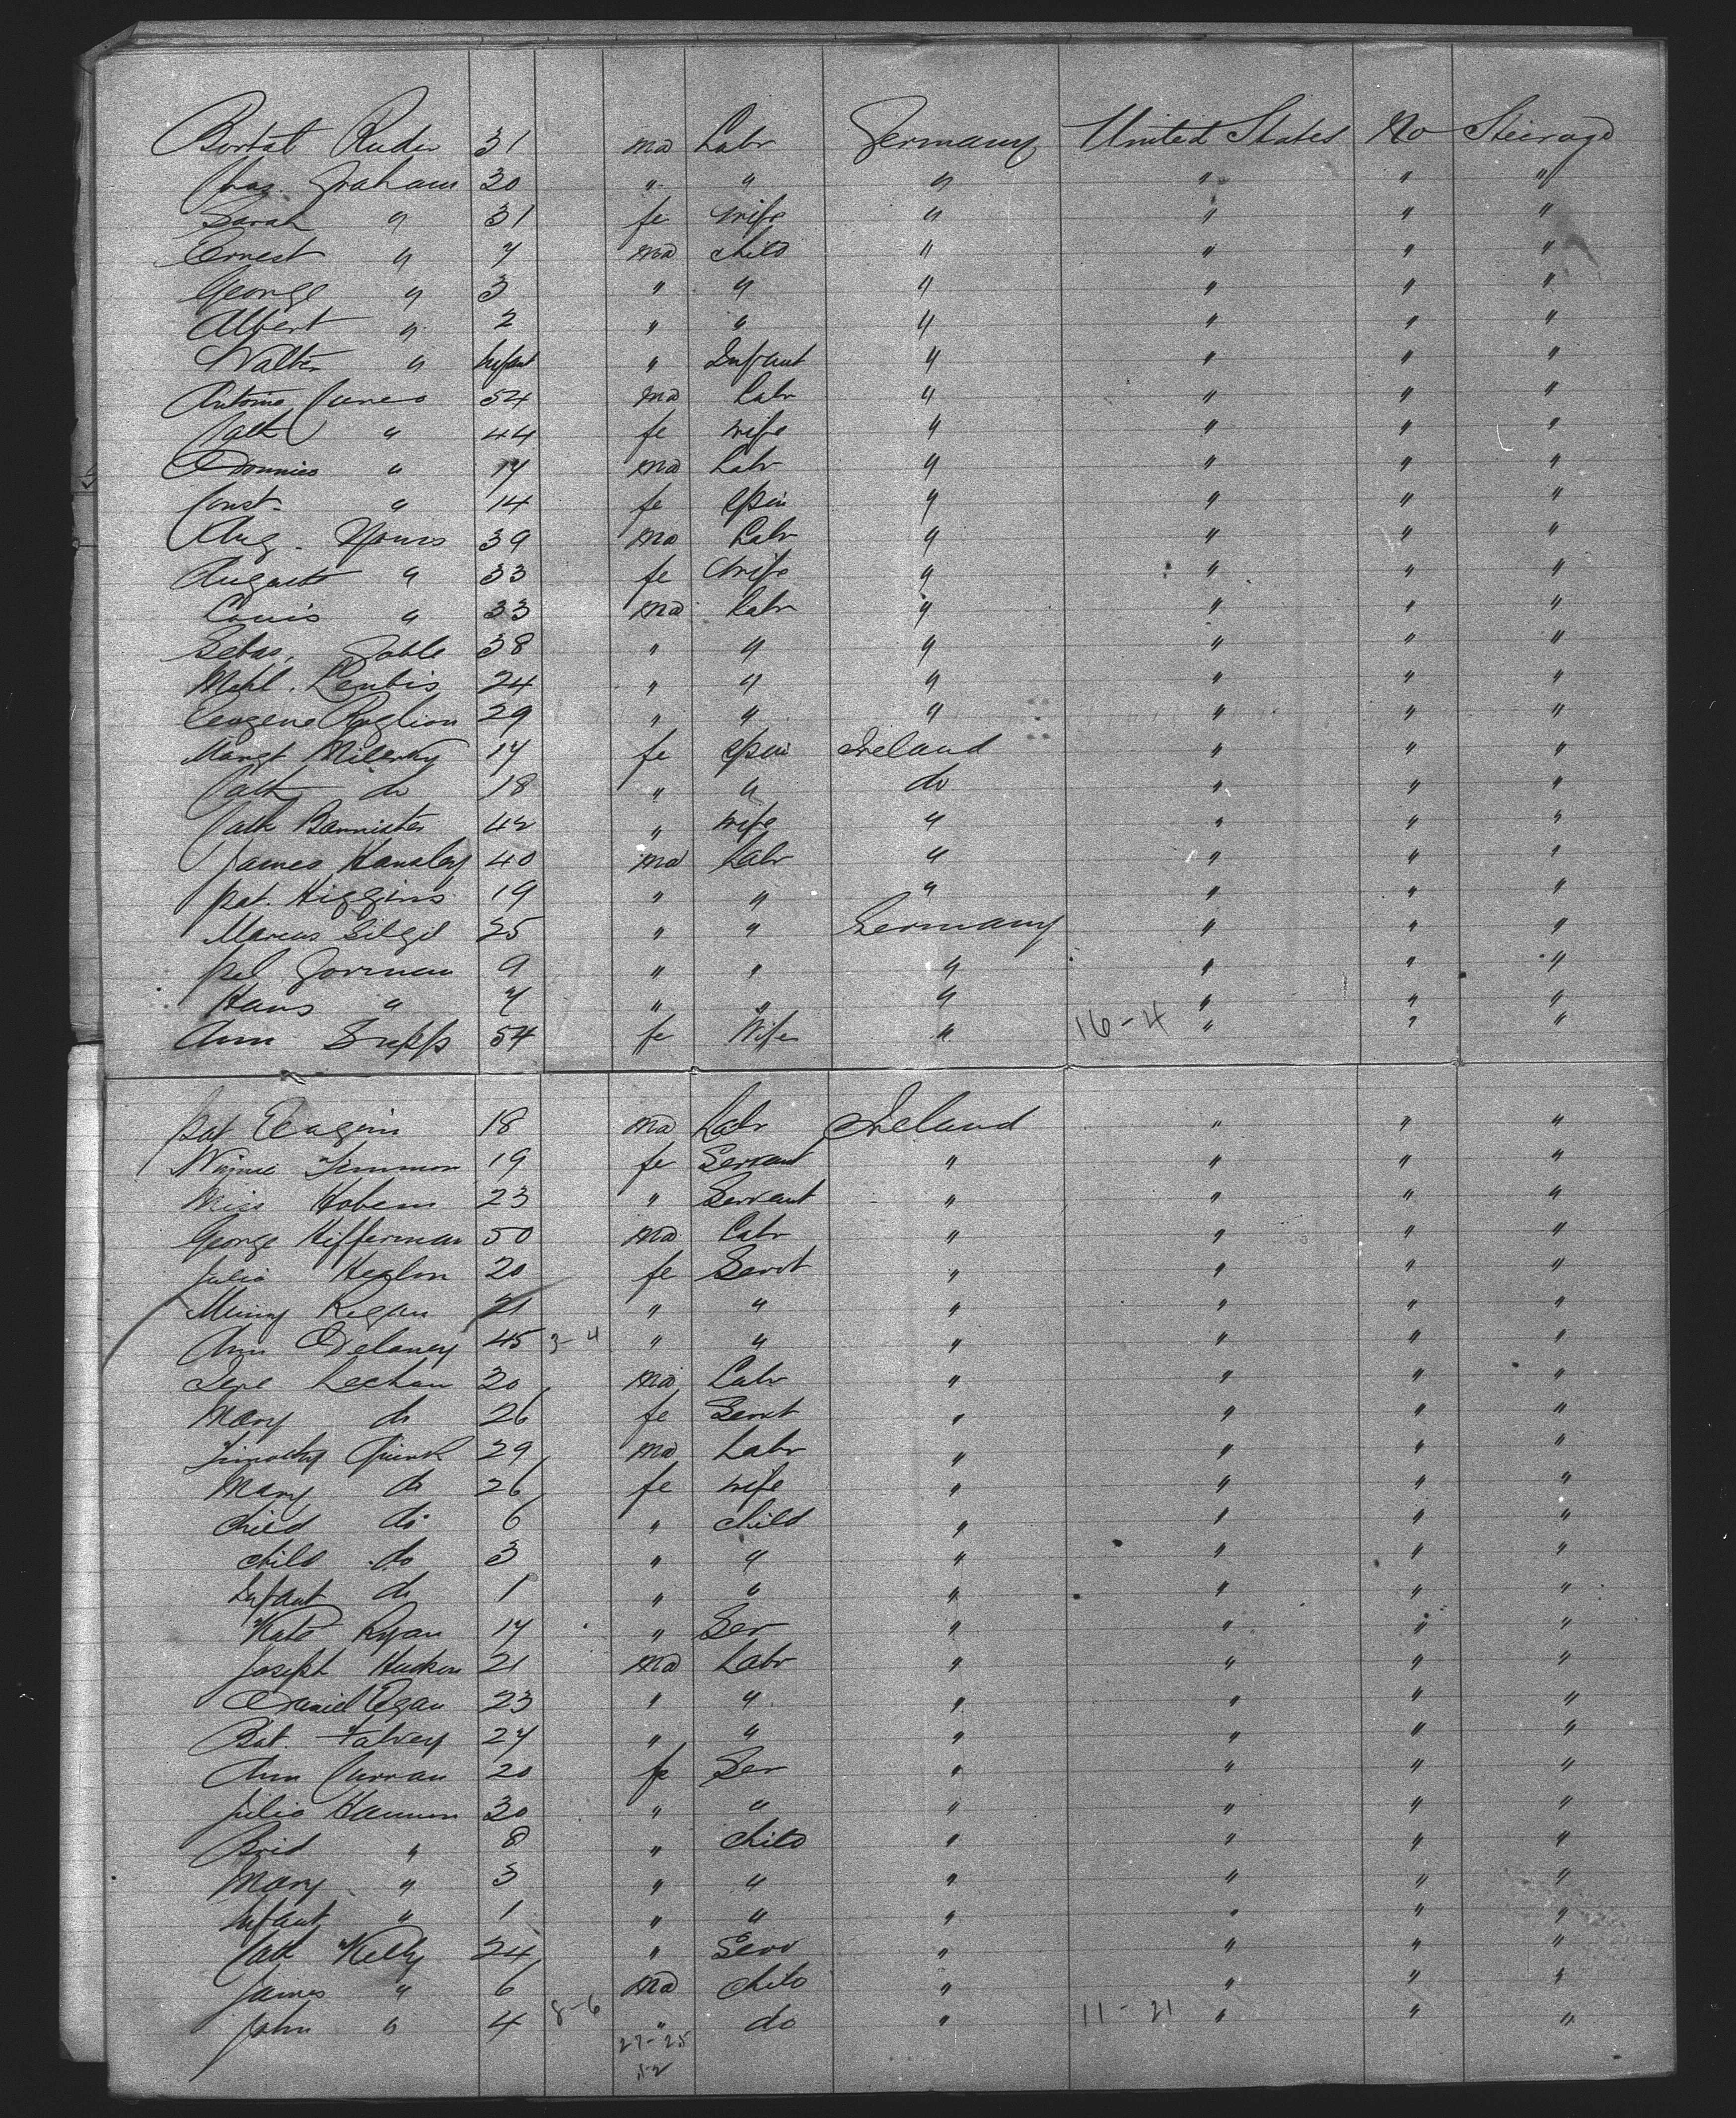 Ruder 31 ma Labr Germany United States No Steerage
Chas. Graham 30 " " " " " "
Sarah " 31 fe wife " " " "
Ernest " 7 ma child " " " "
George " 3 " " " " " "
Albert " 2 " " " " " "
Walter " Infant " Infant " " " "
Antoine Cuneo 54 ma Labr " " " "
Cath " 44 fe wife " " " "
" 17 ma Labr " " " "
Const. " 14 fe Spin " " " "
Aug. 39 ma Labr " " " "
August " 33 fe wife " " " "
Louis " 33 ma Labr " " " "
Sebas. Goble 38 " " " " " "
24 " " " " " "
Eugene 29 " " " " " "
Margt 17 fe Spin Ireland " " "
Cath do 18 " " do " " "
Cath Bannister 42 " wife " " " "
James Hansley 40 ma Labr " " " "
Pat. Higgins 19 " " " " " "
Marcus 25 " " Germany " " "
Gorman 9 " " " " " "
Hans " 7 " " " " " "
Ann 54 fe Wife " 16-4 " " "
Pat 18 ma Labr Ireland " " "
Winnie Timmon 19 fe Servant " " " "
Miss Hobens 23 " Servant " " " "
George Hifferman 50 ma Labr " " " "
Julia 20 fe Servt " " " "
Regan 21 " " " " " "
Ann Delaney 45 3-4 " " " " " "
Lechan 20 ma Labr " " " "
Mary do 26 fe Servt " " " "
Timothy Quirk 29 ma Labr " " " "
Mary do 26 fe wife " " " "
child do 6 " child " " " "
child do 3 " " " " " "
Infant do 1 " " " " " "
Kate Ryan 17 " Ser " " " "
Joseph 21 ma Labr " " " "
Daniel Egan 23 " " " " " "
Pat. Falvey 27 " " " " " "
Ann Curran 20 fe Ser " " " "
Julia Hannon 30 " " " " " "
Brid " 8 " child " " " "
Mary " 3 " " " " " "
Infant " 1 " " " " " "
Cath Kelly 24 " Serv " " " "
James " 6 ma child " " " "
John " 4 8-6 " do " 11-21 " " "
27-25
52